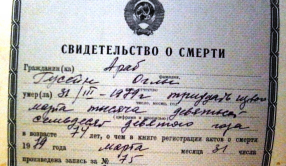 СВИДЕТЕЛЬСТВО О СМЕРТИ
Гражданин(ка) Араб
Гусейн Оглы
умер(ла) 31/III-1979г тридцать первого
марта тысяча девятьсот
семьдесят девятого года
в возрасте 77 лет, о чем в книге регистрации актов о смерти
1979 года марта месяца 31 числа
произведена запись за № 75